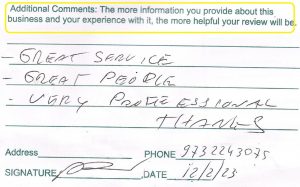 Additional Comments: The more information you provide about this
business and your experience with it, the more helpful your review will be.
- GREAT SERVICE
- GREAT PEOPLE
- VERY PROFESSIONAL
THANKS
Address
PHONE 9732243075
SIGNATURE
DATE 12/2/23